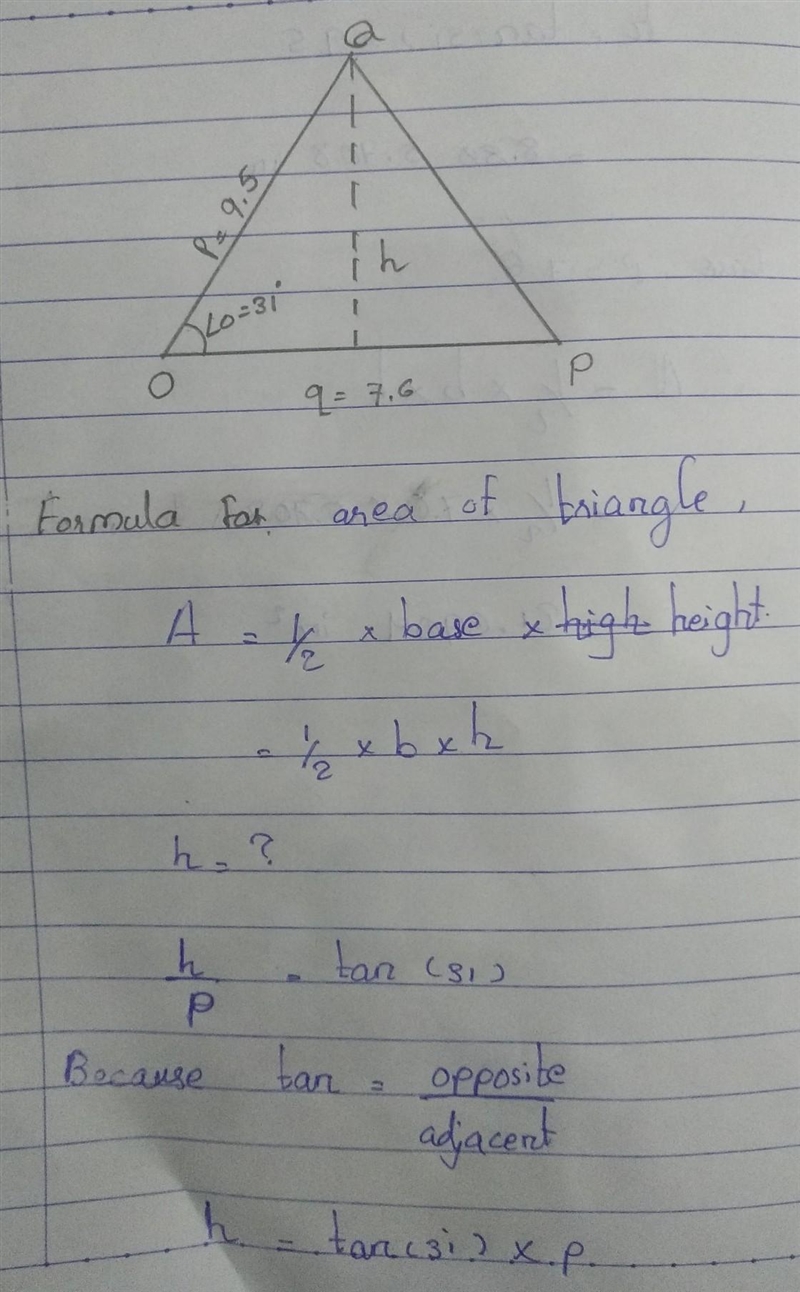 Q
P = 9.5
h
∠O = 31°
O
P
q = 7.6
Formula for area of triangle,
A = 1/2 × base × high height.
= 1/2 × b × h
h = ?
h/P = tan (31)
Because tan = opposite/adjacent
h = tan(31°) × P